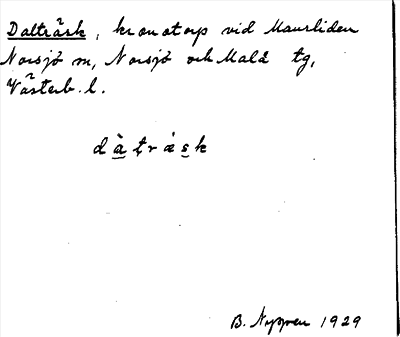 Dalträsk, kronotorp vid Maurliden
Norsjö sn, Norsjö och Malå tg,
Västerb. l.
dàträsk
B. Nygren 1929